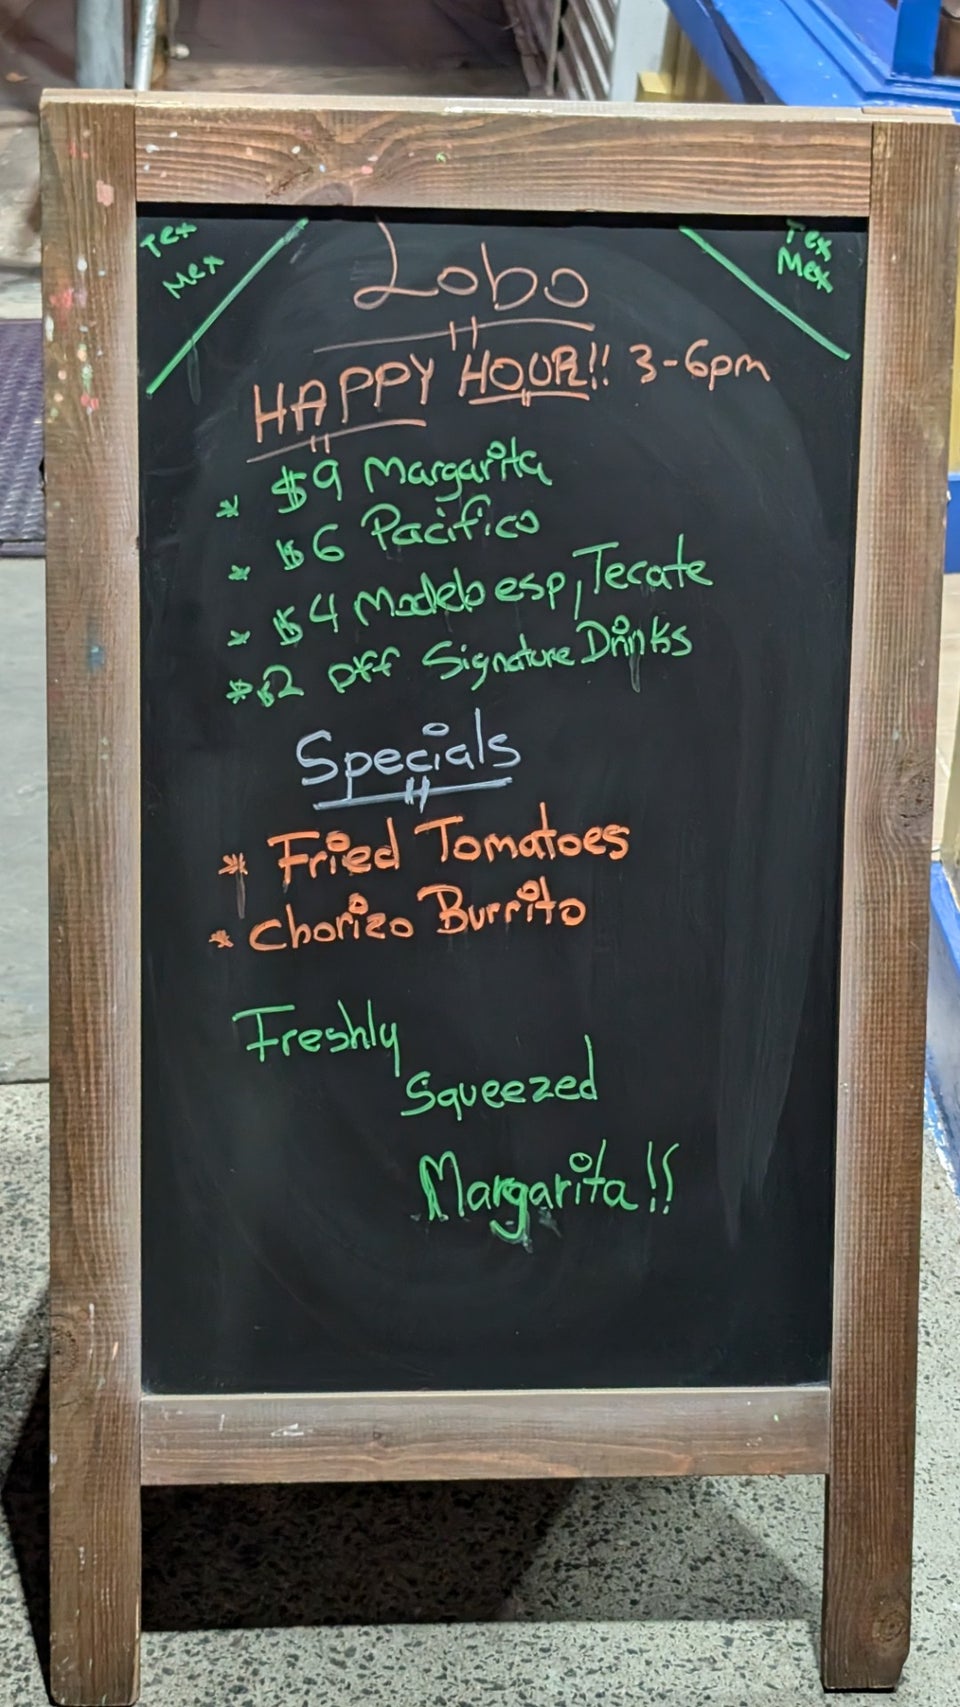 Tex
Mex
Tex
Mex
Lobo
HAPPY HOUR!! 3-6pm
* $9 Margarita
* $6 Pacifico
* $4 Modelo esp, Tecate
* $2 off Signature Drinks
Specials
* Fried Tomatoes
* Chorizo Burrito
Freshly
Squeezed
Margarita!!